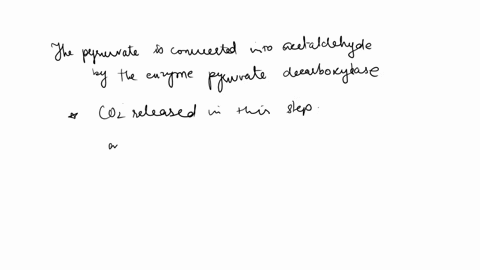 The pyruvate is converted into acetaldehyde
by the enzyme pyruvate decarboxylase
* CO2 released in this step.
a